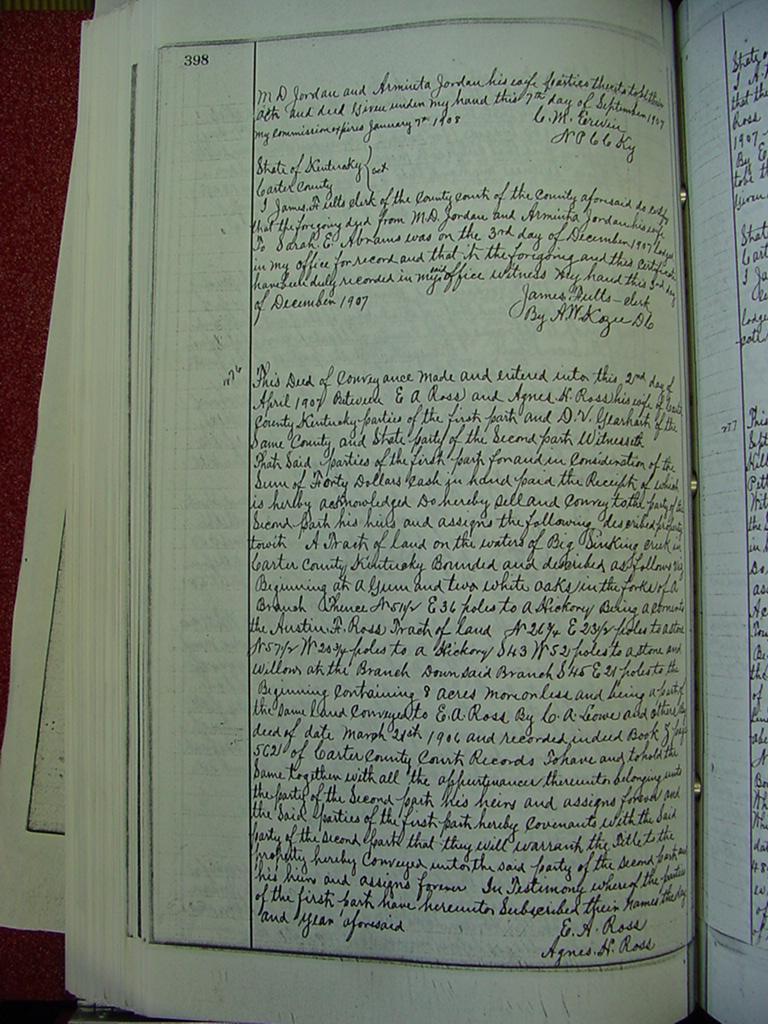 398
M D Jordan and Arminta Jordan his wife parties thereto to be their
act and deed Given under my hand this 7th day of September 1907
my commission expires January 7th 1908 C. M. Erwin
N P C C Ky
State of Kentucky
Carter County } sct
I James. Fults clerk of the County court of the County aforesaid do certify
that the foregoing deed from M.D. Jordan and Arminta Jordan his wife
To Sarah. E. Abrams was on the 3rd day of December 1907 lodged
in my office for record and that it the foregoing and this certificate
have been duly recorded in my said office witness my hand this 3rd day
of December 1907 James Fults - clerk
By A.W. Kozee D C
This Deed of Conveyance made and entered into this 2nd day of
April 1907 Between E A Ross and Agnes H. Ross his wife of Carter
County Kentucky parties of the first part and D. V. Gearhart of the
Same County and State party of the Second part Witnesseth
That Said parties of the first part for and in Consideration of the
Sum of Forty Dollars Cash in hand paid the Receipt of which
is hereby acknowledged Do hereby Sell and Convey to the party of the
Second part his heirs and assigns the following described property
towit A Tract of land on the waters of Big Sinking creek in
Carter County Kentucky Bounded and described as follows viz
Beginning at a Gum and two white oaks in the forks of a
Branch Thence N 51 1/2 E 36 poles to a Hickory Being a corner to
the Austin. F. Ross Tract of land N 26 3/4 E 23 1/2 poles to a stone
N 57 1/2 W 25 3/4 poles to a Hickory S 43 W 52 poles to a stone and
willows at the Branch Down said Branch S 45 E 21 poles to the
Beginning Containing 8 acres more or less and being a part of
the Same land Conveyed to E. A. Ross By C. A. Lowe and others by
deed of date March 21st 1906 and recorded in deed Book page
562 of Carter County Court Records To have and to hold the
Same together with all the appurtenances thereunto belonging unto
the party of the Second part his heirs and assigns forever and
the Said parties of the first part hereby Covenants with the Said
party of the second part that they will warrant the Title to the
property hereby Conveyed unto the said party of the Second part and
his heirs and assigns forever In Testimony whereof the parties
of the first part have hereunto Subscribed their names the day
and year aforesaid E. A. Ross
Agnes. H. Ross